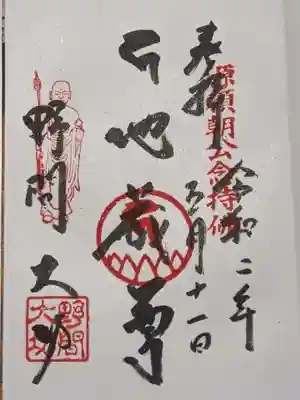 奉拝
源頼朝公念持佛
令和二年
月十一日
地蔵尊
野間大坊
野間大坊